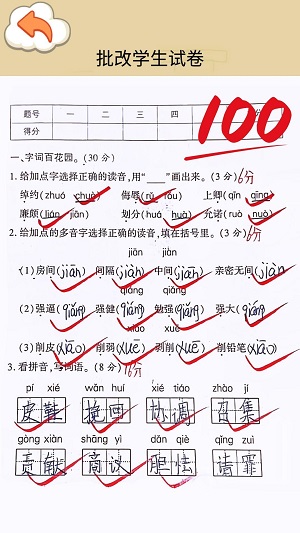 批改学生试卷
题号 一 二 三 四 分
得分
100
一、字词百花园。(30 分)
1. 给加点字选择正确的读音,用“____”画出来。(3 分) 6分
绰约(zhuó chuò) 侮辱(rǔ rǔu) 上卿(qīn qīng)
廉颇(lián jiān) 划分(huá huà) 允诺(ruò nuò)
2. 给加点的多音字选择正确的读音,填在括号里。(3 分) 6分
jiān jiàn
(1) 房间(jiān) 间隔(jiàn) 中间(jiān) 亲密无间(jiàn)
qiáng qiǎng
(2) 强逼(qiǎng) 强健(qiáng) 勉强(qiǎng) 强大(qiáng)
xiāo xuē
(3) 削皮(xiāo) 削弱(xuē) 剥削(xuē) 削铅笔(xiāo)
3. 看拼音,写词语。(8 分) 16分
pí xié wǎn huí xié tiáo zhào jí
皮鞋 挽回 协调 召集
gòng xiàn shāng yì dǎn qiè qǐng zuì
贡献 商议 胆怯 请罪